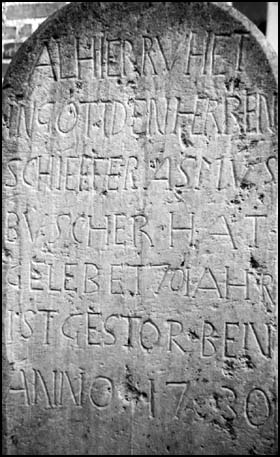 ALHIER RVHET
IN GOT DEN HERREN
SCHIEFFER ASMVS
BVSCHER HAT
GELEBET 70 IAHR
IST GESTORBEN
ANNO 1730